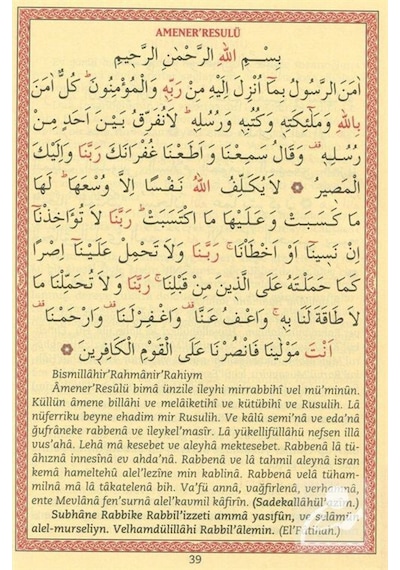 AMENER'RESULÜ
بِسْمِ اللهِ الرَّحْمٰنِ الرَّحِيمِ
اٰمَنَ الرَّسُولُ بِمَٓا اُنْزِلَ اِلَيْهِ مِنْ رَبِّهٖ وَالْمُؤْمِنُونَۜ كُلٌّ اٰمَنَ
بِاللهِ وَمَلٰٓئِكَتِهٖ وَكُتُبِهٖ وَرُسُلِهٖۜ لَانُفَرِّقُ بَيْنَ اَحَدٍ مِنْ
رُسُلِهٖ۠ وَقَالُوا سَمِعْنَا وَاَطَعْنَا غُفْرَانَكَ رَبَّنَا وَاِلَيْكَ
الْمَصِيرُ ۞ لَايُكَلِّفُ اللهُ نَفْسًا اِلَّا وُسْعَهَاۜ لَهَا
مَا كَسَبَتْ وَعَلَيْهَا مَا اكْتَسَبَتْۜ رَبَّنَا لَا تُؤَاخِذْنَٓا
اِنْ نَسِينَٓا اَوْ اَخْطَأْنَاۚ رَبَّنَا وَلَا تَحْمِلْ عَلَيْنَٓا اِصْرًا
كَمَا حَمَلْتَهُ عَلَى الَّذِينَ مِنْ قَبْلِنَاۚ رَبَّنَا وَلَا تُحَمِّلْنَا مَا
لَا طَاقَةَ لَنَا بِهٖۚ وَاعْفُ عَنَّا۠ وَاغْفِرْلَنَا۠ وَارْحَمْنَا۠
اَنْتَ مَوْلٰينَا فَانْصُرْنَا عَلَى الْقَوْمِ الْكَافِرِينَ ۞
Bismillâhir'Rahmânir'Rahiym
Âmener'Resûlü bimâ ünzile ileyhi mirrabbihî vel mü'minûn.
Küllün âmene billâhi ve melâiketihî ve kütübihî ve Rusulih. Lâ
nüferriku beyne ehadim mir Rusulih. Ve kâlû semi'nâ ve eda'nâ
ğufrâneke rabbenâ ve ileykel'masîr. Lâ yükellifüllâhü nefsen illâ
vus'ahâ. Lehâ mâ kesebet ve aleyhâ mektesebet. Rabbenâ lâ tü-
âhıznâ innesînâ ev ahda'nâ. Rabbenâ ve lâ tahmil aleynâ isran
kemâ hameltehû alel'lezîne min kablinâ. Rabbenâ velâ tüham-
milnâ mâ lâ tâkatelenâ bih. Va'fü annâ, vağfirlenâ, verhamnâ,
ente Mevlânâ fen'surnâ alel'kavmil kâfirîn. (Sadekallâhül'azîm.)
Subhâne Rabbike Rabbil'izzeti ammâ yasıfûn, ve selâmün
alel-murseliyn. Velhamdülillâhi Rabbil'âlemin. (El'Fatihah.)
39